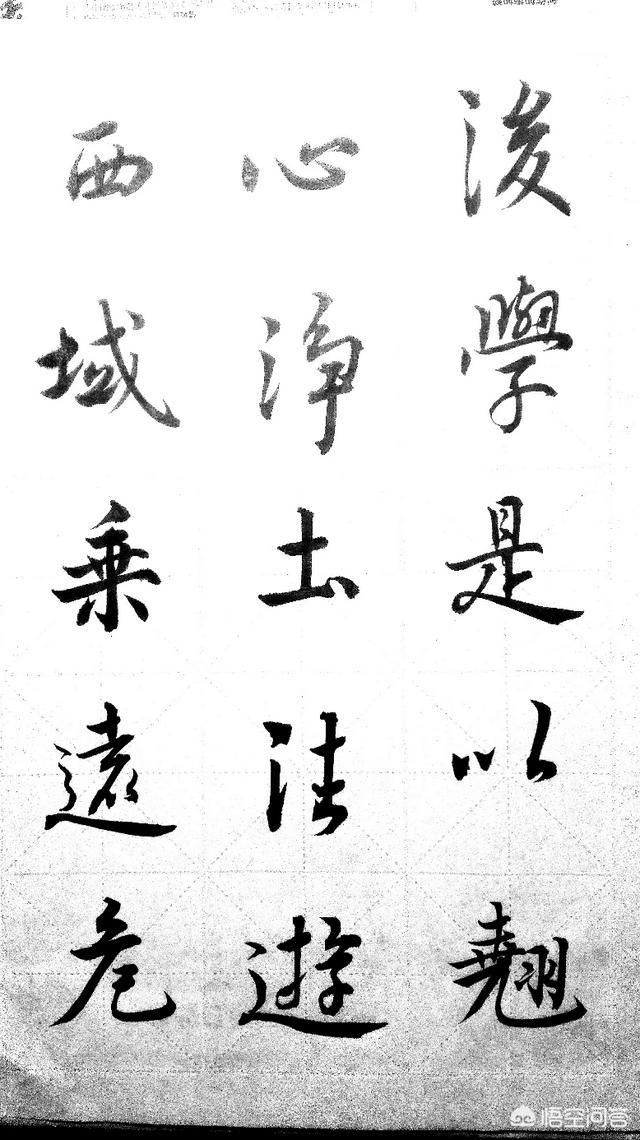 後學是以翹
心淨土往遊
西域乗遠危
悟空问答